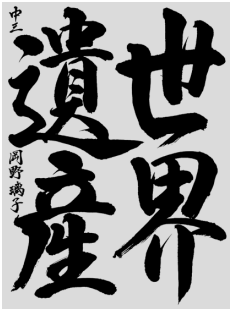 世界
遺産
中三 岡野璃子